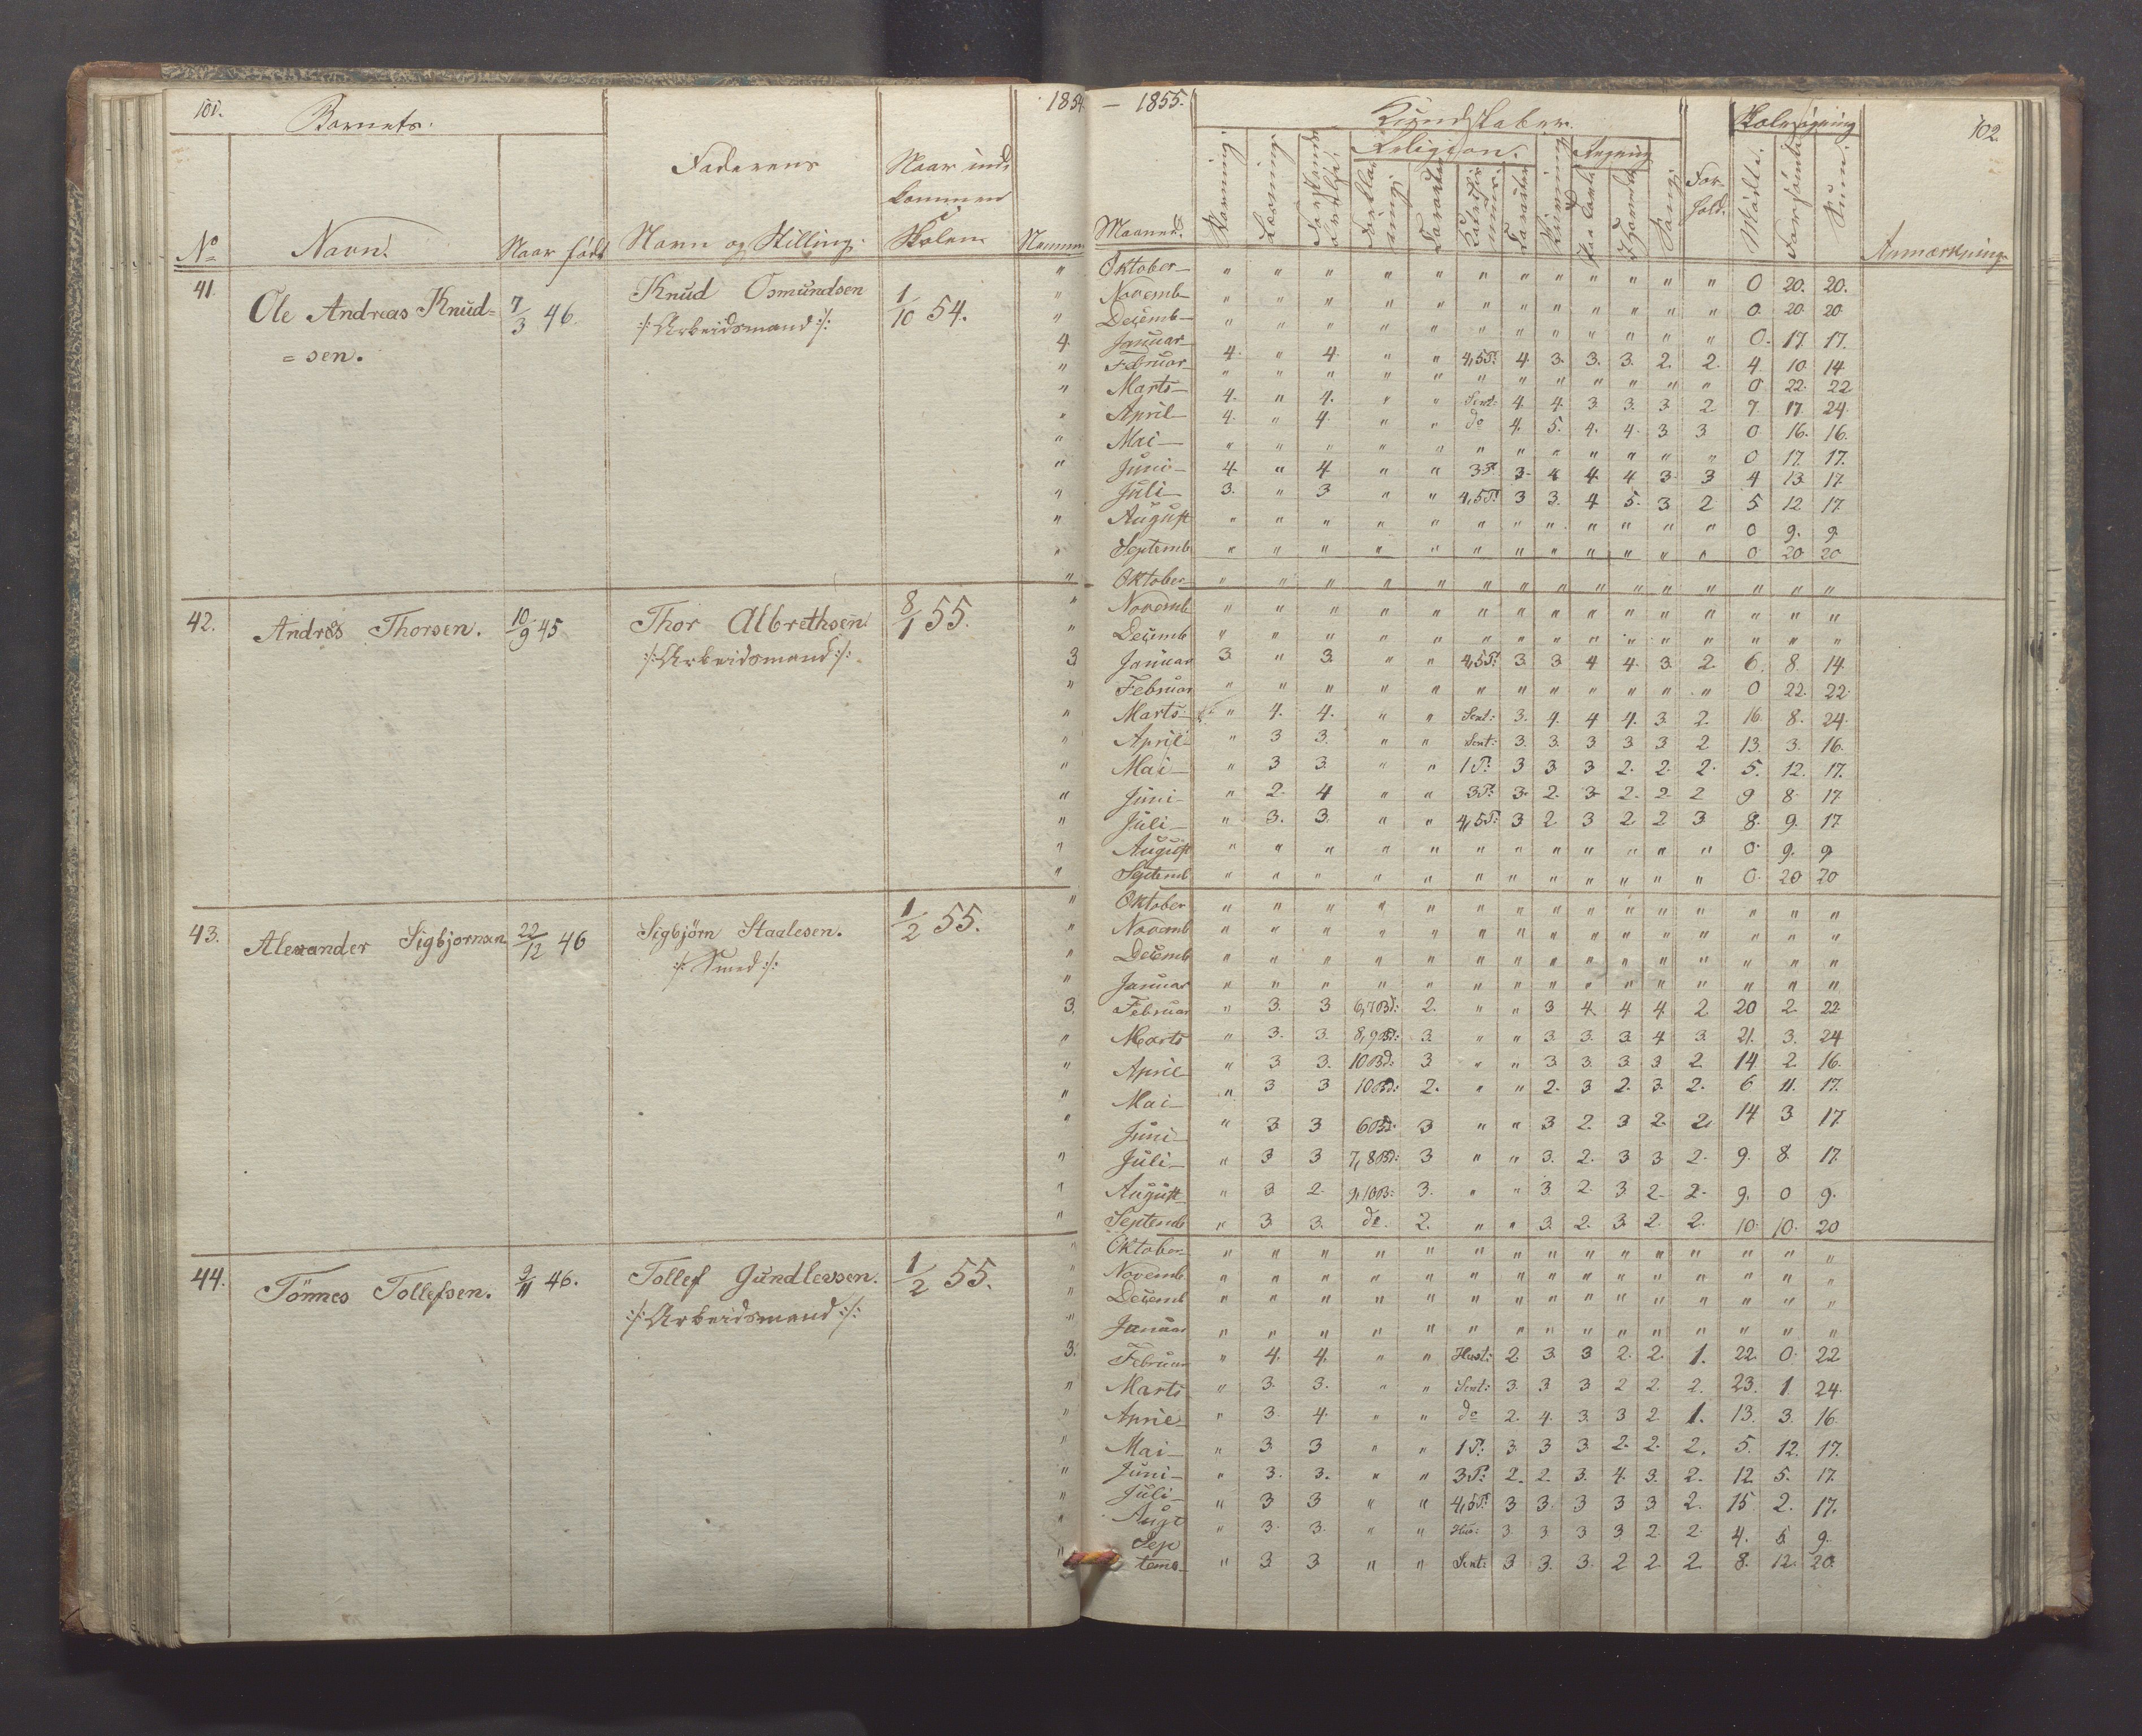 101.
Barnets.
1854 — 1855.
Kundskaber.
Skolesøgning
102.
Religion.
Regning
Faderens
Naar ind-
kommen
Skolen
For-
hold.
Mødte.
Forsømte
Sum.
Sang
No
Navn.
Naar født
Navn og Stilling.
Maaned.
Anmærkning
41.
Ole Andreas Knud=
= sen.
7/3 46.
Knud Osmundsen
:/: Arbeidsmand :/:
1/10 54.
Oktober " " " " " " " " " " " " 0 20. 20.
Novemb " " " " " " " " " " " " 0 20 20
Decemb " " " " " " " " " " " " 0. 17. 17.
4. Januar 4. " 4. " " 4,5P. 4 3. 3. 3. 2. 2. 4. 10 14
" Februar " " " " " " " " " " " " 0 22. 22
" Marts 4. " 4. " " Sent: 4. 4. 3 3. 3 2 7. 17 24.
" April 4. " 4. " " do 4. 5. 4. 4. 3 3 0 16. 16.
" Mai " " " " " " " " " " " " 0 17. 17.
" Juni 4. " 4 " " 3P. 3. 4 4 4 3. 3 4 13 17
" Juli 3. " 3 " " 4,5P. 3 3. 4 5. 3 2 5 12 17
" August " " " " " " " " " " " " 0 9. 9.
" Septemb " " " " " " " " " " " " 0. 20 20
42.
Andreas Thorsen.
10/9 45
Thor Albrethsen
:/: Arbeidsmand :/:
8/1 55.
" Oktober " " " " " " " " " " " " " " "
" Novemb " " " " " " " " " " " " " " "
" Decemb " " " " " " " " " " " " " " "
3. Januar 3. " 3. " " 4,5P. 3 3 4 4. 3. 2. 6. 8. 14.
" Februar " " " " " " " " " " " " 0 22. 22.
" Marts " 4. 4. " " Sent: 3. 4. 4 4. 3 2. 16. 8. 24.
" April " 3 3. " " Sent: 3. 3. 3 3 3 2 13. 3. 16.
" Mai " 3 3. " " 1P. 3 3 3 2. 2. 2. 5. 12. 17.
" Juni " 2. 4 " " 3P. 3. 2. 3 2. 2. 2 9 8 17
" Juli " 3. 3. " " 4,5P. 3 2 3 2 2 3. 8. 9. 17
" August " " " " " " " " " " " " 0. 9. 9
" Septemb " " " " " " " " " " " " 0. 20 20
43.
Alexander Sigbjornsen
22/12 46
Sigbjörn Staalesen.
:/: Smed :/:
1/2 55.
" Oktober " " " " " " " " " " " " " " "
" Novemb " " " " " " " " " " " " " " "
" Decemb " " " " " " " " " " " " " " "
" Januar " " " " " " " " " " " " " " "
3. Februar " 3. 3 6,7Bd: 2. " " 3 4. 4 4. 2. 20 2. 22
" Marts " 3. 3. 8,9Bd: 3. " " 3. 3. 3. 4. 3. 21. 3. 24
" April " 3 3. 10Bd: 3 " " 3 3. 3 3 2 14. 2. 16.
" Mai " 3 3 10Bd: 2. " " 2. 3 2. 3. 2. 6 11. 17.
" Juni " 3 3 6Bd: 3 " " 3 2 3 2. 2 14 3 17.
" Juli " 3 3 7,8Bd: 3 " " 3. 2. 3 3 2. 9. 8. 17
" August " 3 2. 9,10B: 3. " " 3. 2 3. 2. 2. 9. 0 9.
" Septemb " 3. 3. do. 2. " " 3. 2. 3 2. 2. 10. 10. 20
44.
Tönnes Tollefsen.
9/11 46.
Tollef Gundlevsen.
:/: Arbeidsmand :/:
1/2 55.
" Oktober " " " " " " " " " " " " " " "
" Novemb " " " " " " " " " " " " " " "
" Decemb " " " " " " " " " " " " " " "
" Januar " " " " " " " " " " " " " " "
3. Februar " 4. 4. " " Hust: 2 3. 3 2. 2. 1. 22. 0. 22
" Marts " 3. 3. " " Sent: 3. 3 3 2 2 2. 23. 1 24.
" April " 3. 4. " " do 2. 4. 3. 3 2 1. 13. 3. 16.
" Mai " 3 3 " " 1P. 3. 3 3 2. 2. 2. 5. 12. 17.
" Juni " 3. 3. " " 3P. 2. 2. 3. 4. 3. 2. 12. 5. 17.
" Juli " 3 3 " " 4,5P. 3 3. 3 3 3 2. 15 2. 17.
" Augt " 3. 3. " " Hus: 3. 3. 3 3. 2 2 4. 5 9.
" Sep
temb " 3 3 " " Sent: 3 3. 3. 2 2 2. 8. 12. 20.